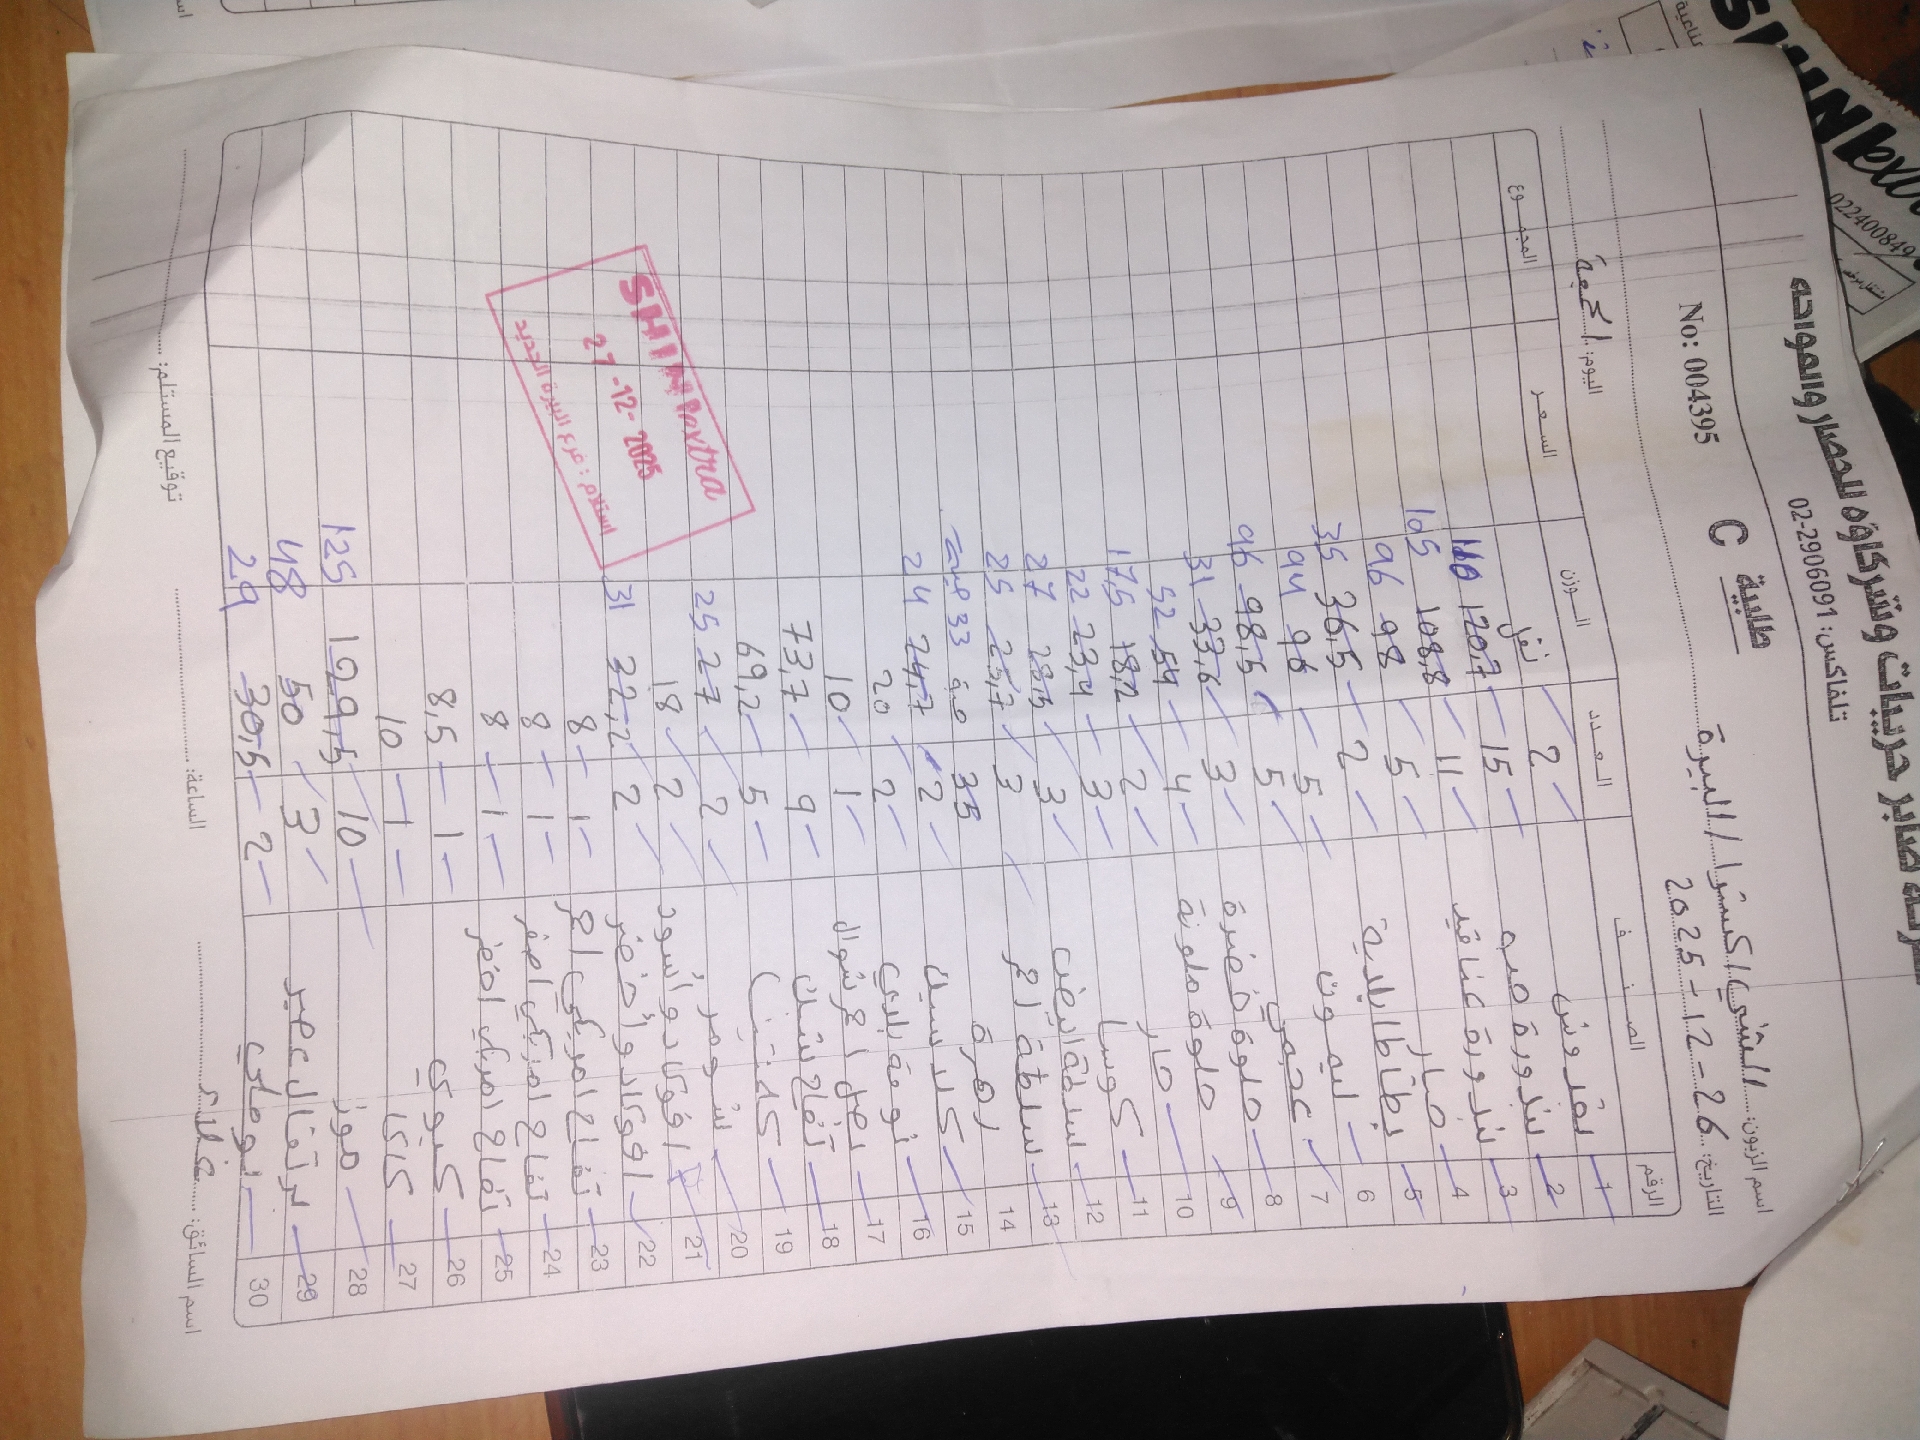 شركة صابر حربيات وشركاؤه للخضار والفواكه
تلفاكس: 02-2906091
No: 004395
طلبية C
اسم الزبون: الشني اكسترا / البيرة
اليوم: الجمعة
التاريخ: 26-12-2025
الرقم الصنف العدد الوزن السعر المجموع
1 بقدونس 2
2 بندورة 15 120,7
3 بندورة عناقيد 11 108,8 105
4 خيار 5 98 96
5 بطاطا بلدية 2 36,5 35
6 ليمون 5 96 94
7 عجمي 5 98,5 96
8 حلوة خضرة 3 33,6 31
9 حلوة ملونة 4 54 52
10 حار 2 18,2 17,5
11 كوسا 3 23,4 22
12 سلطة ابيض 3 28,5 27
13 سلطة احمر 3 25,7 25
14 زهرة 35
15 كلاسين 2 24,7 24
16 ثومة بلدي 2 20
17 بصل احمر شوال 1 10
18 تفاح 9 73,7
19 كلمنتينا 5 69,2
20 شومر 2 27 25
21 افوكادو أسود 2 18
22 افوكادو أخضر 2 32,2 31
23 تفاح امريكي احمر 1 8
24 تفاح امريكي اصفر 1 8
25 تفاح امريكي اخضر 1 8
26 كيوي 1 8,5
27 كاكا 1 10
28 موز 10 129,5 125
29 برتقال عصير 3 50 48
30 بوملي 2 30,5 29
SHINIextra
27-12-2025
استلام: فرع البيرة الجديد
اسم السائق:
الساعة:
توقيع المستلم:
SHINIextra
022400849